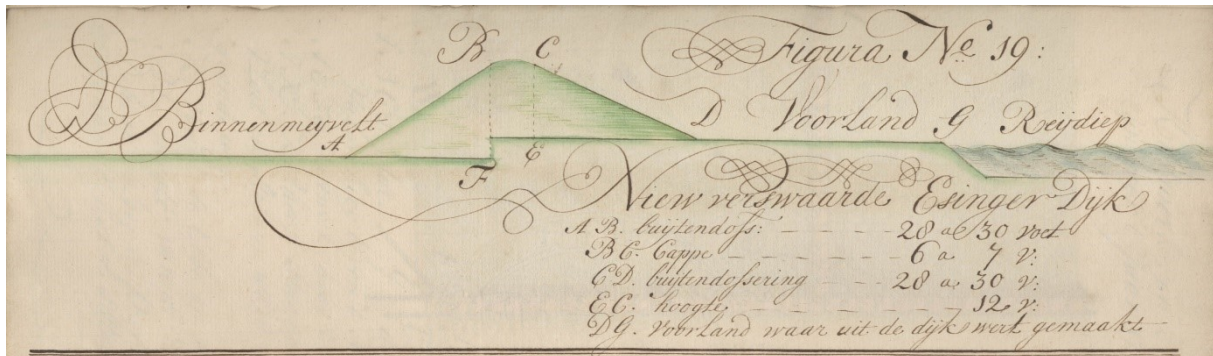 Figura No. 19:
B C
Binnenmeyvelt A D Voorland G Reijdiep
E
F
Niew verswaarde Esinger Dijk
A B. buijtendoss: - - - - - 28 a 30 voet
B C. Cappe - - - - - - - - 6 a 7 v:
C D. buijtendossering - - - 28 a 30 v:
E C. hoogte - - - - - - - - 12 v:
D G. Voorland waar uit de dijk wert gemaakt